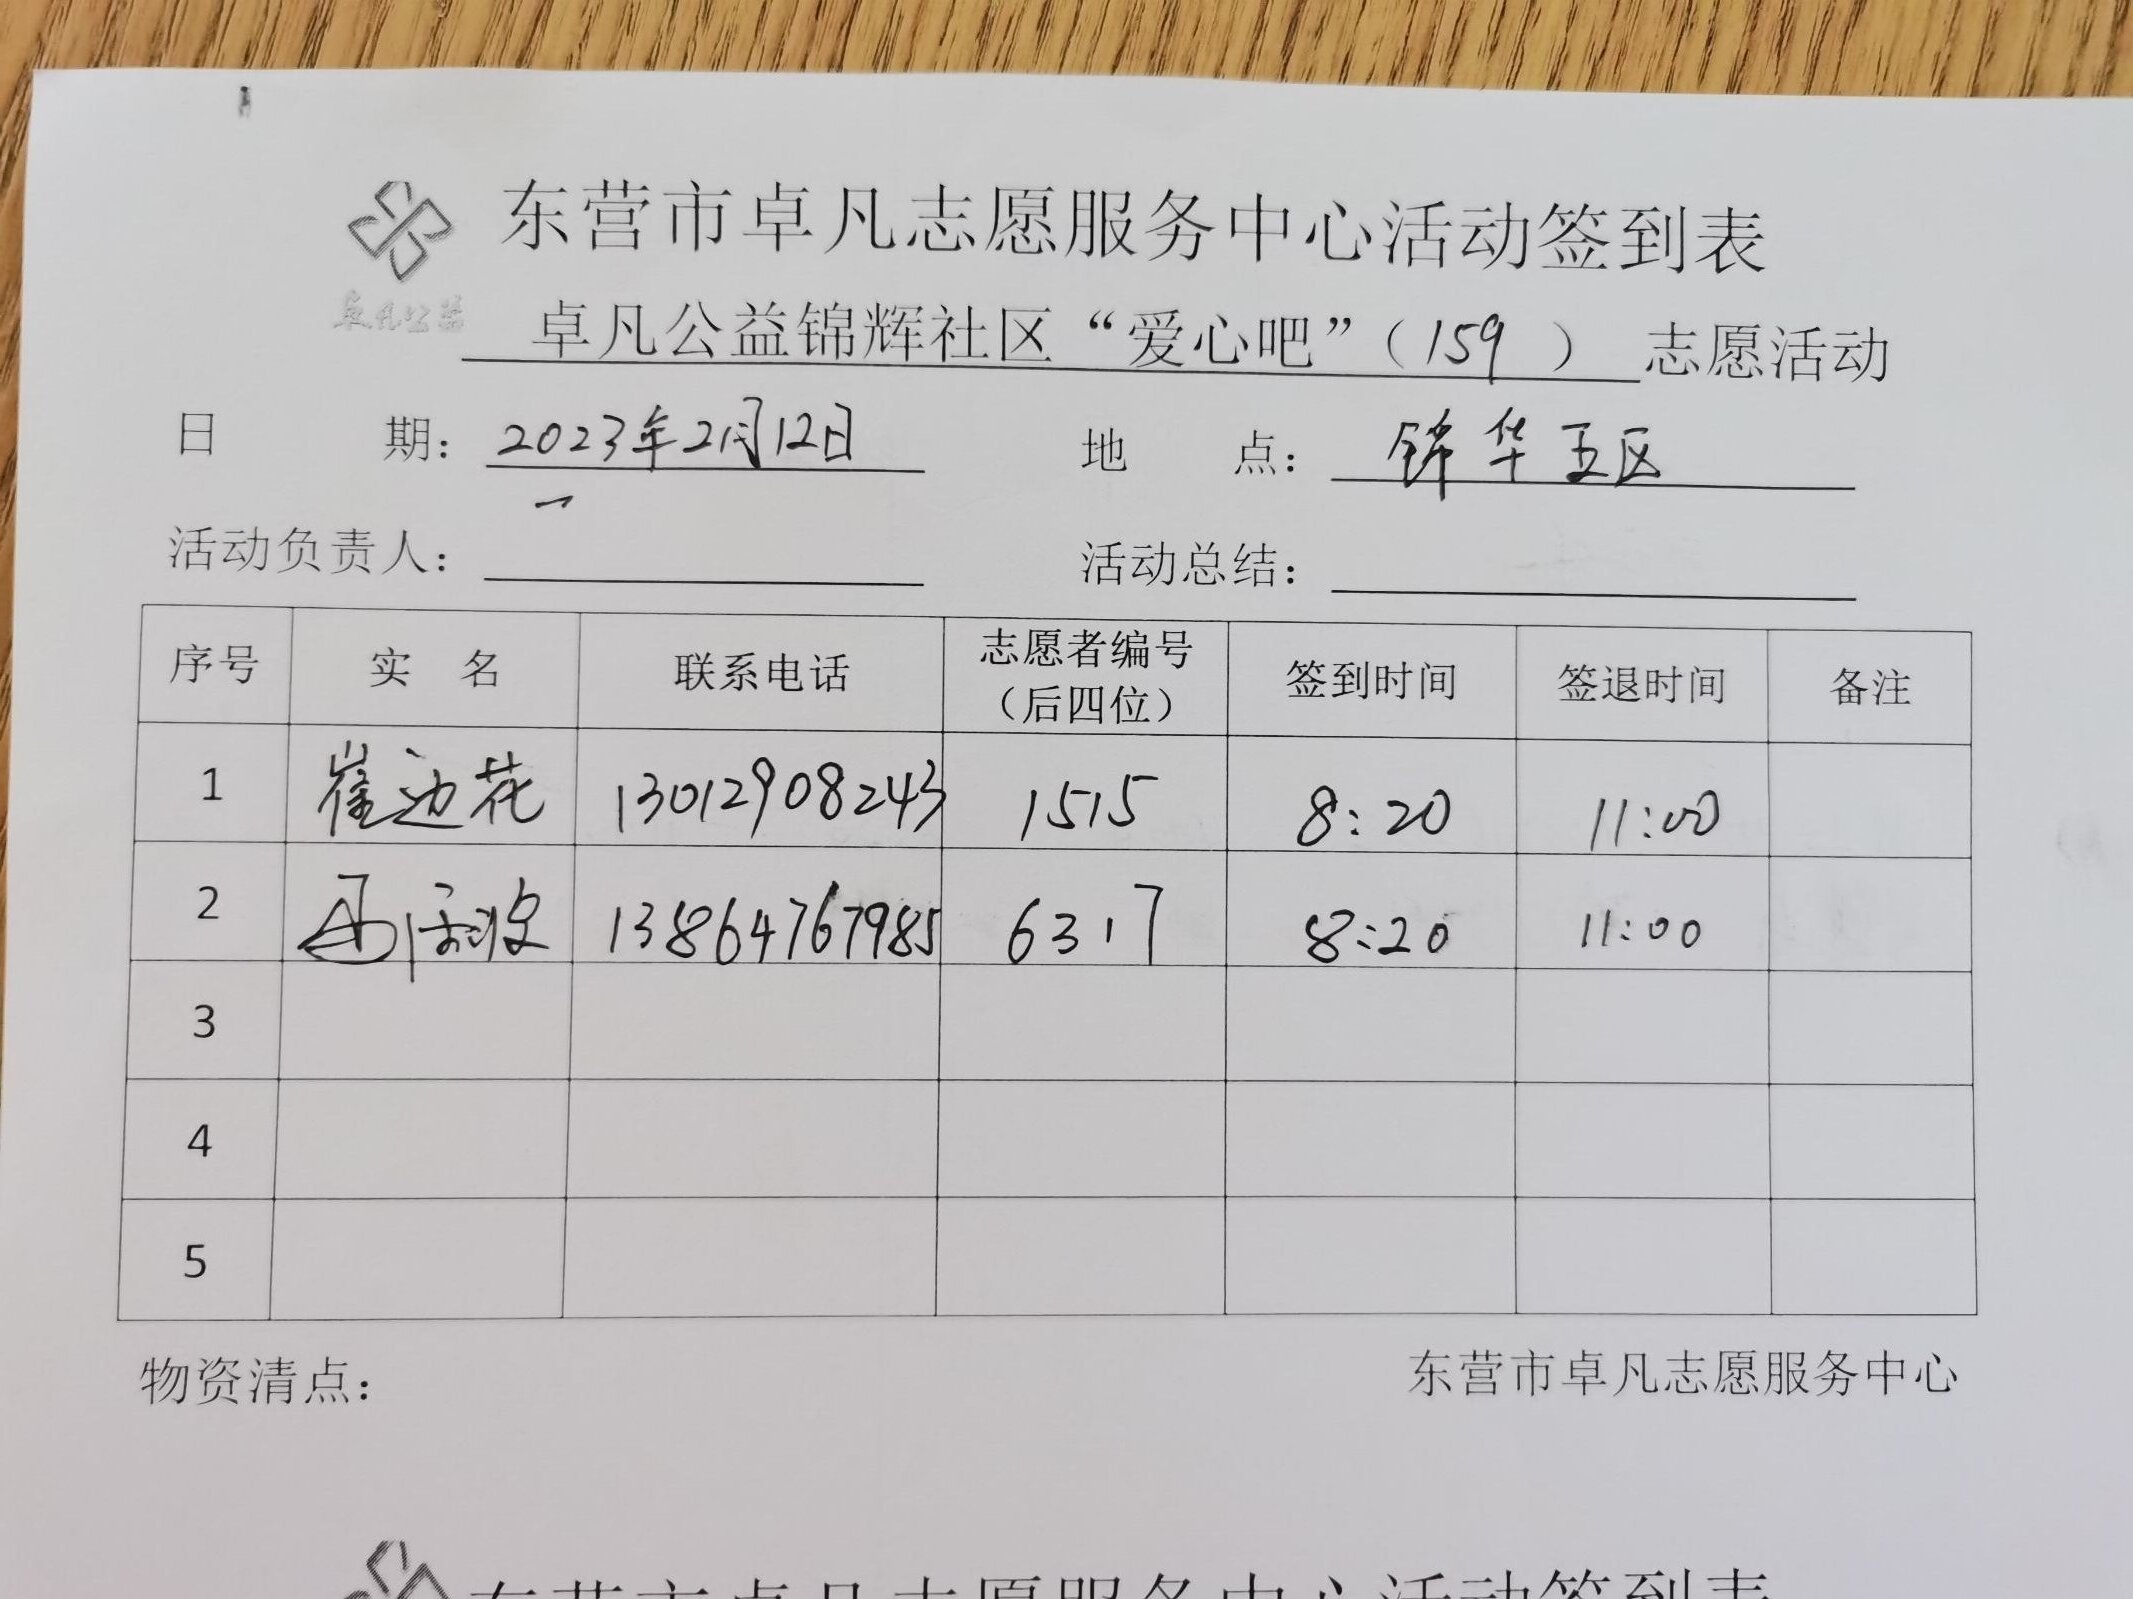 东营市卓凡志愿服务中心活动签到表
卓凡公益
卓凡公益锦辉社区“爱心吧”（159）志愿活动
日期：2023年2月12日 地点：锦华五区
活动负责人： 活动总结：
序号 实名 联系电话 志愿者编号（后四位） 签到时间 签退时间 备注
1 崔边花 13012908243 1515 8:20 11:00
2 13864767985 6317 8:20 11:00
3
4
5
物资清点： 东营市卓凡志愿服务中心
东营市卓凡志愿服务中心活动签到表